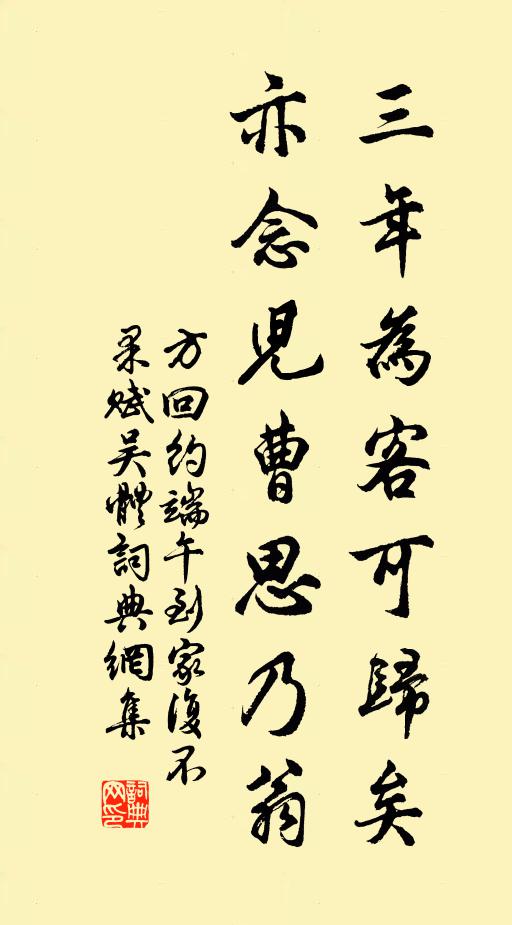 三年為客可歸矣
亦念兒曹思乃翁
方回約端午到家復不
果賦吴體詞典網集
詞典网印